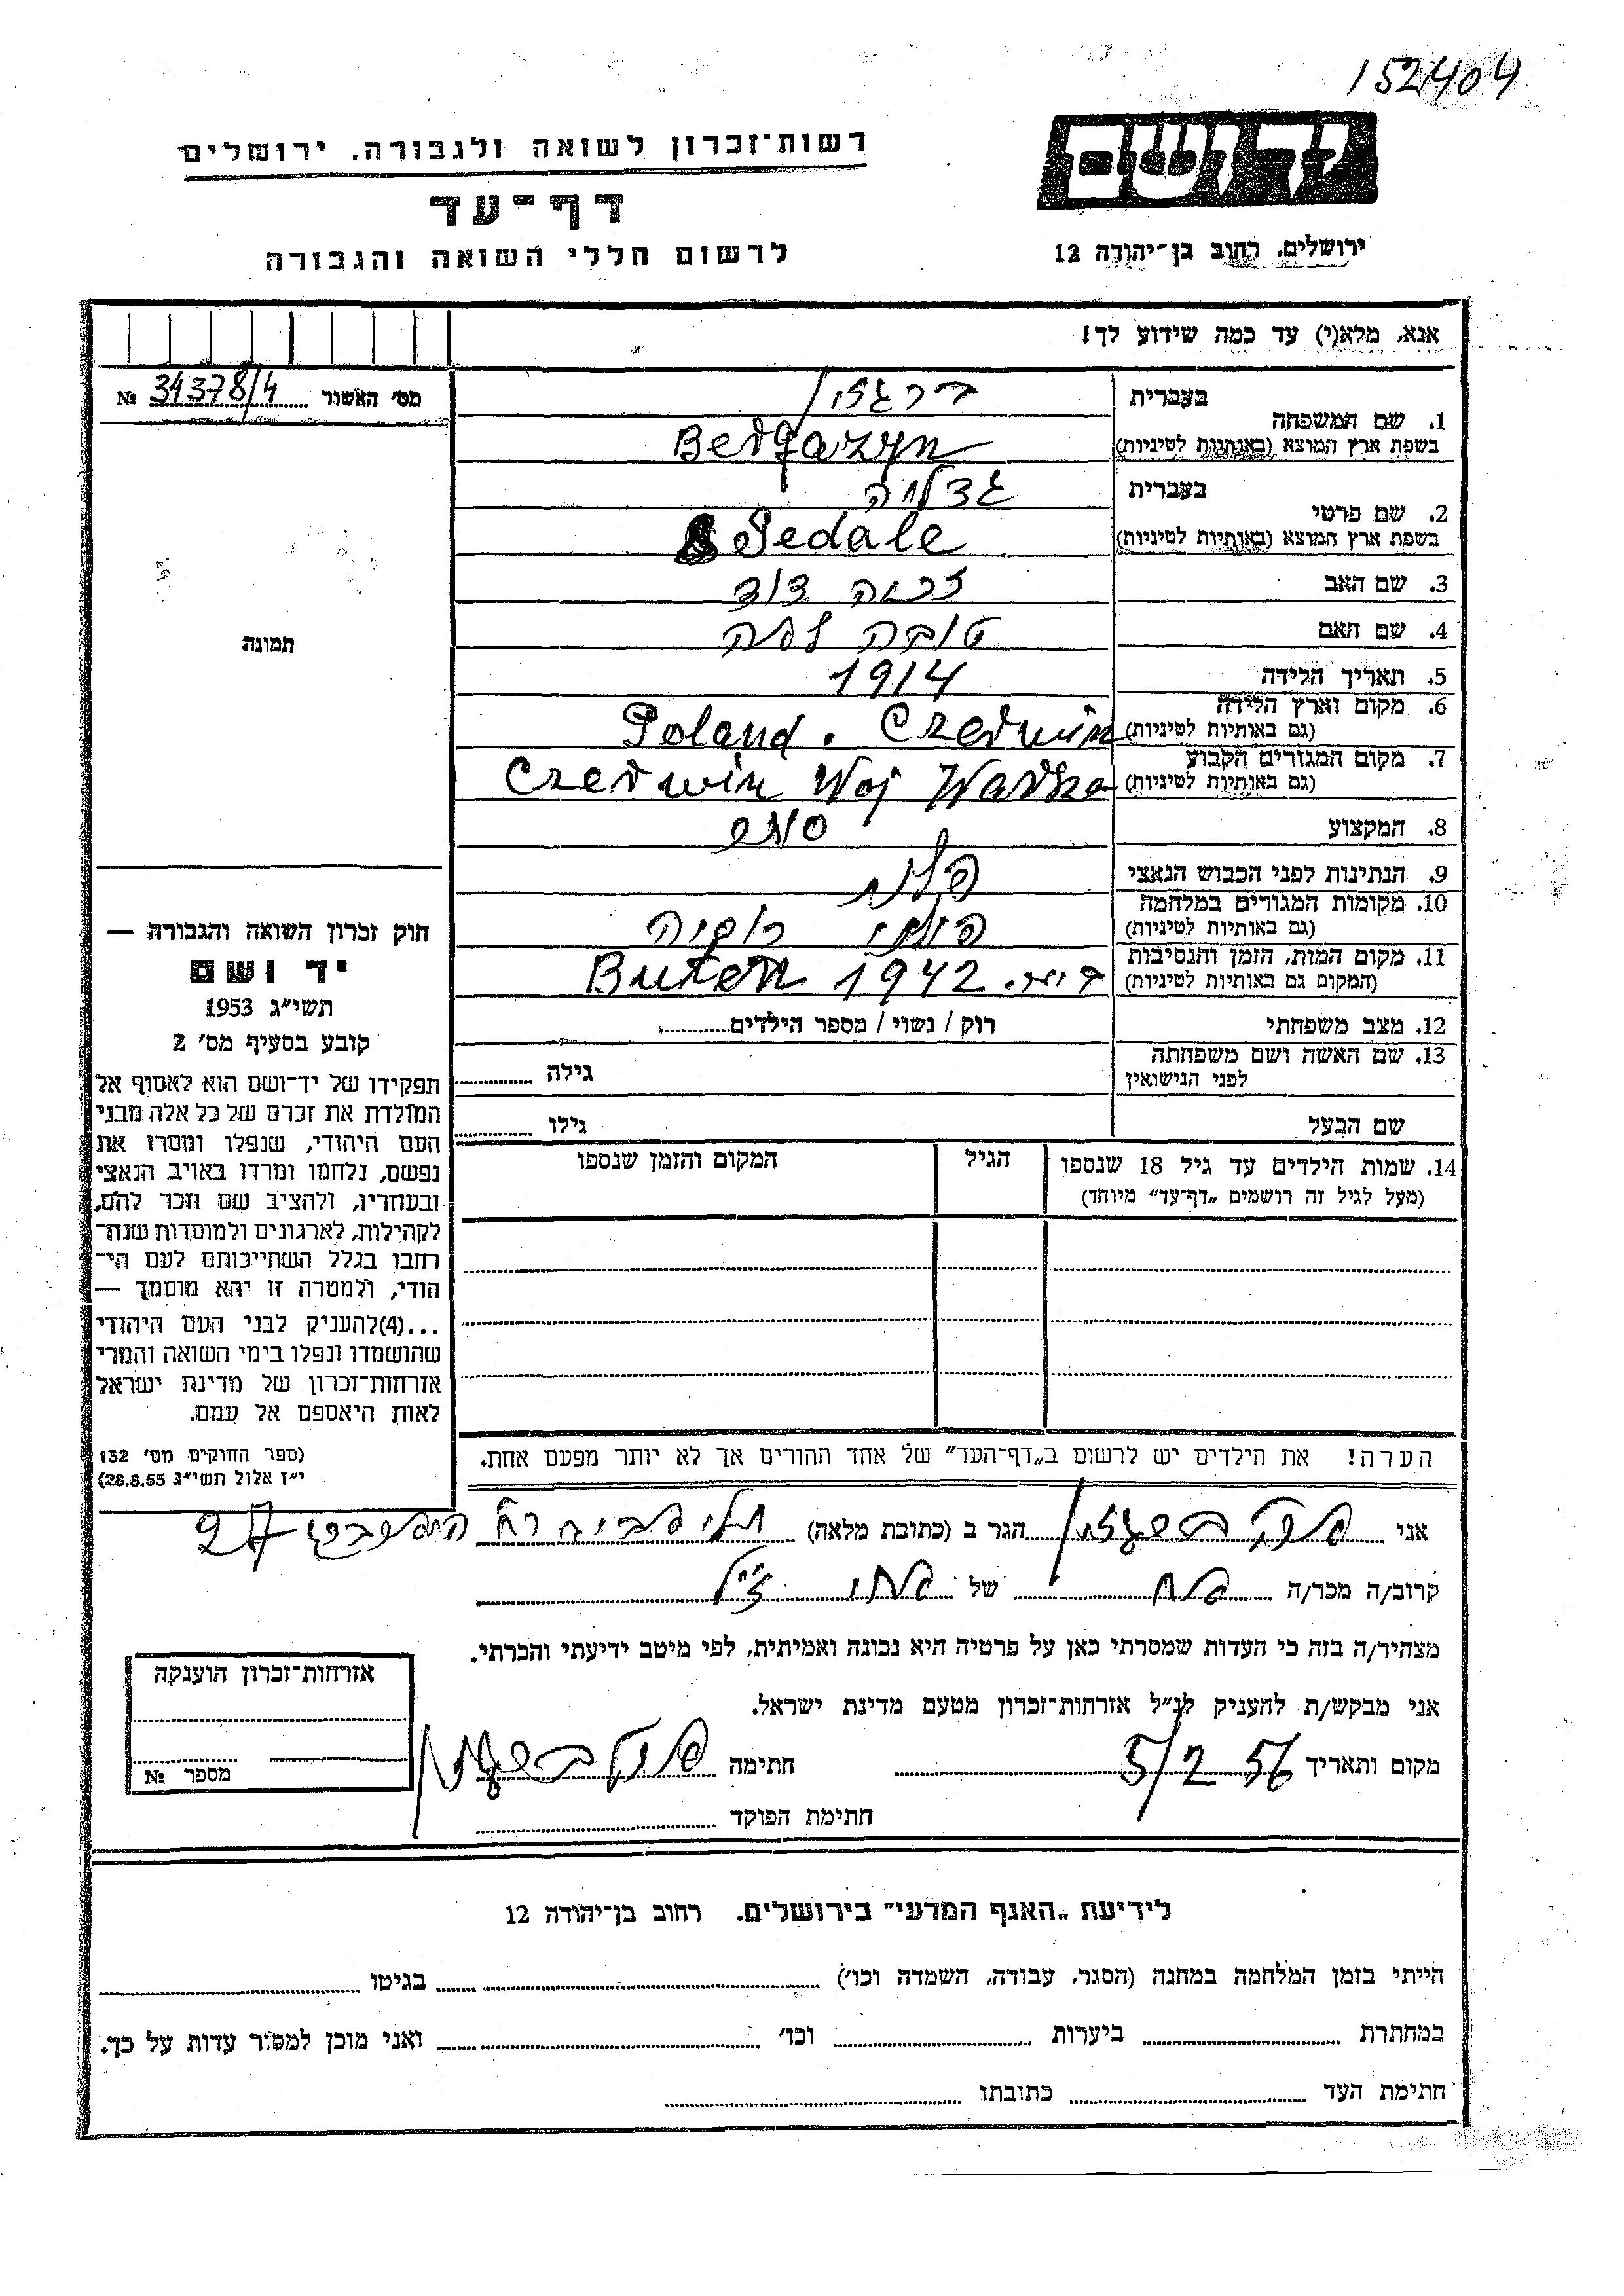 152404
רשות־זכרון לשואה ולגבורה, ירושלים
יד ושם
דף־עד
לרשום חללי השואה והגבורה
ירושלים, רחוב בן־יהודה 12
אנא, מלא(י) עד כמה שידוע לך!
מס׳ האשור № 34378/4
תמונה
1. שם המשפחה
בעברית ברגזין
בשפת ארץ המוצא (באותיות לטיניות) Bergazyn
2. שם פרטי
בעברית גדליה
בשפת ארץ המוצא (באותיות לטיניות) Gedale
3. שם האב דוד
4. שם האם טובה
5. תאריך הלידה 1914
6. מקום וארץ הלידה Poland. Czerwin
(גם באותיות לטיניות)
7. מקום המגורים הקבוע Czerwin Woj
(גם באותיות לטיניות)
8. המקצוע
9. הנתינות לפני הכבוש הנאצי
10. מקומות המגורים במלחמה רוסיה
(גם באותיות לטיניות)
11. מקום המות, הזמן והנסיבות 1942
(המקום גם באותיות לטיניות)
12. מצב משפחתי רוק / נשוי / מספר הילדים
13. שם האשה ושם משפחתה גילה
לפני הנישואין
שם הבעל גילו
14. שמות הילדים עד גיל 18 שנספו הגיל המקום והזמן שנספו
(מעל לגיל זה רושמים „דף־עד״ מיוחד)
הערה! את הילדים יש לרשום ב„דף־העד״ של אחד ההורים אך לא יותר מפעם אחת.
חוק זכרון השואה והגבורה —
יד ושם
תשי״ג 1953
קובע בסעיף מס׳ 2
תפקידו של יד־ושם הוא לאסוף אל
המולדת את זכרם של כל אלה מבני
העם היהודי, שנפלו ומסרו את
נפשם, נלחמו ומרדו באויב הנאצי
ובעוזריו, ולהציב שם וזכר להם,
לקהילות, לארגונים ולמוסדות שנח־
רחבו בגלל השתייכותם לעם הי־
הודי, ולמטרה זו יהא מוסמך —
...(4)להעניק לבני העם היהודי
שהושמדו ונפלו בימי השואה והמרי
אזרחות־זכרון של מדינת ישראל
לאות היאספם אל עמם.
(ספר החוקים מס׳ 132
י״ז אלול תשי״ג 28.8.53)
אני הגר ב (כתובת מלאה) 27
קרוב/ה מכר/ה אח של
מצהיר/ה בזה כי העדות שמסרתי כאן על פרטיה היא נכונה ואמיתית, לפי מיטב ידיעתי והכרתי.
אני מבקש/ת להעניק לנ״ל אזרחות־זכרון מטעם מדינת ישראל.
מקום ותאריך 5/2 56 חתימה
חתימת הפוקד
אזרחות־זכרון הוענקה
מספר №
לידיעת „האגף המדעי״ בירושלים. רחוב בן־יהודה 12
הייתי בזמן המלחמה במחנה (הסגר, עבודה, השמדה וכו׳) בגיטו
במחתרת ביערות וכו׳ ואני מוכן למסור עדות על כך.
חתימת העד כתובתו